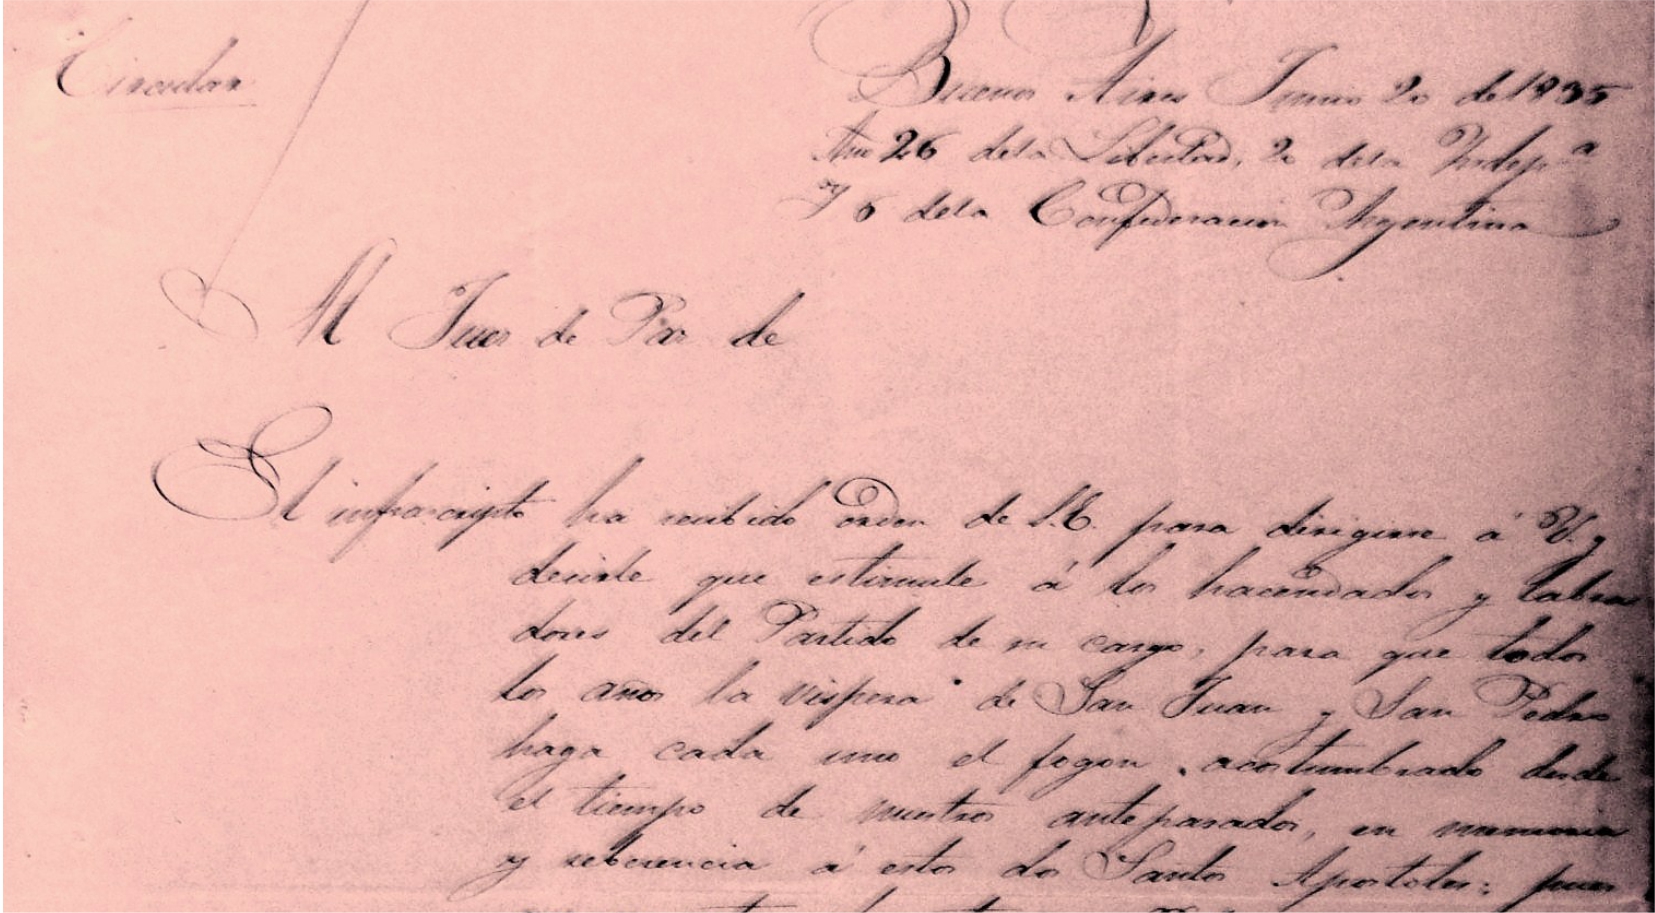 Circular
Buenos Aires Junio 20 de 1835
Año 26 dela Libertad, 20 dela Indep.ª
y 6 dela Confederacion Argentina
Al Juez de Paz de
El infrascripto ha recibido órden de S.E. para dirigirse á V. y
decirle que estimule á los hacendados y labra
dores del Partido de su cargo, para que todos
los años la vispera de San Juan y San Pedro
haga cada uno el fogon acostumbrado desde
el tiempo de nuestros antepasados, en memoria
y reberencia á estos dos Santos Apostoles; pues